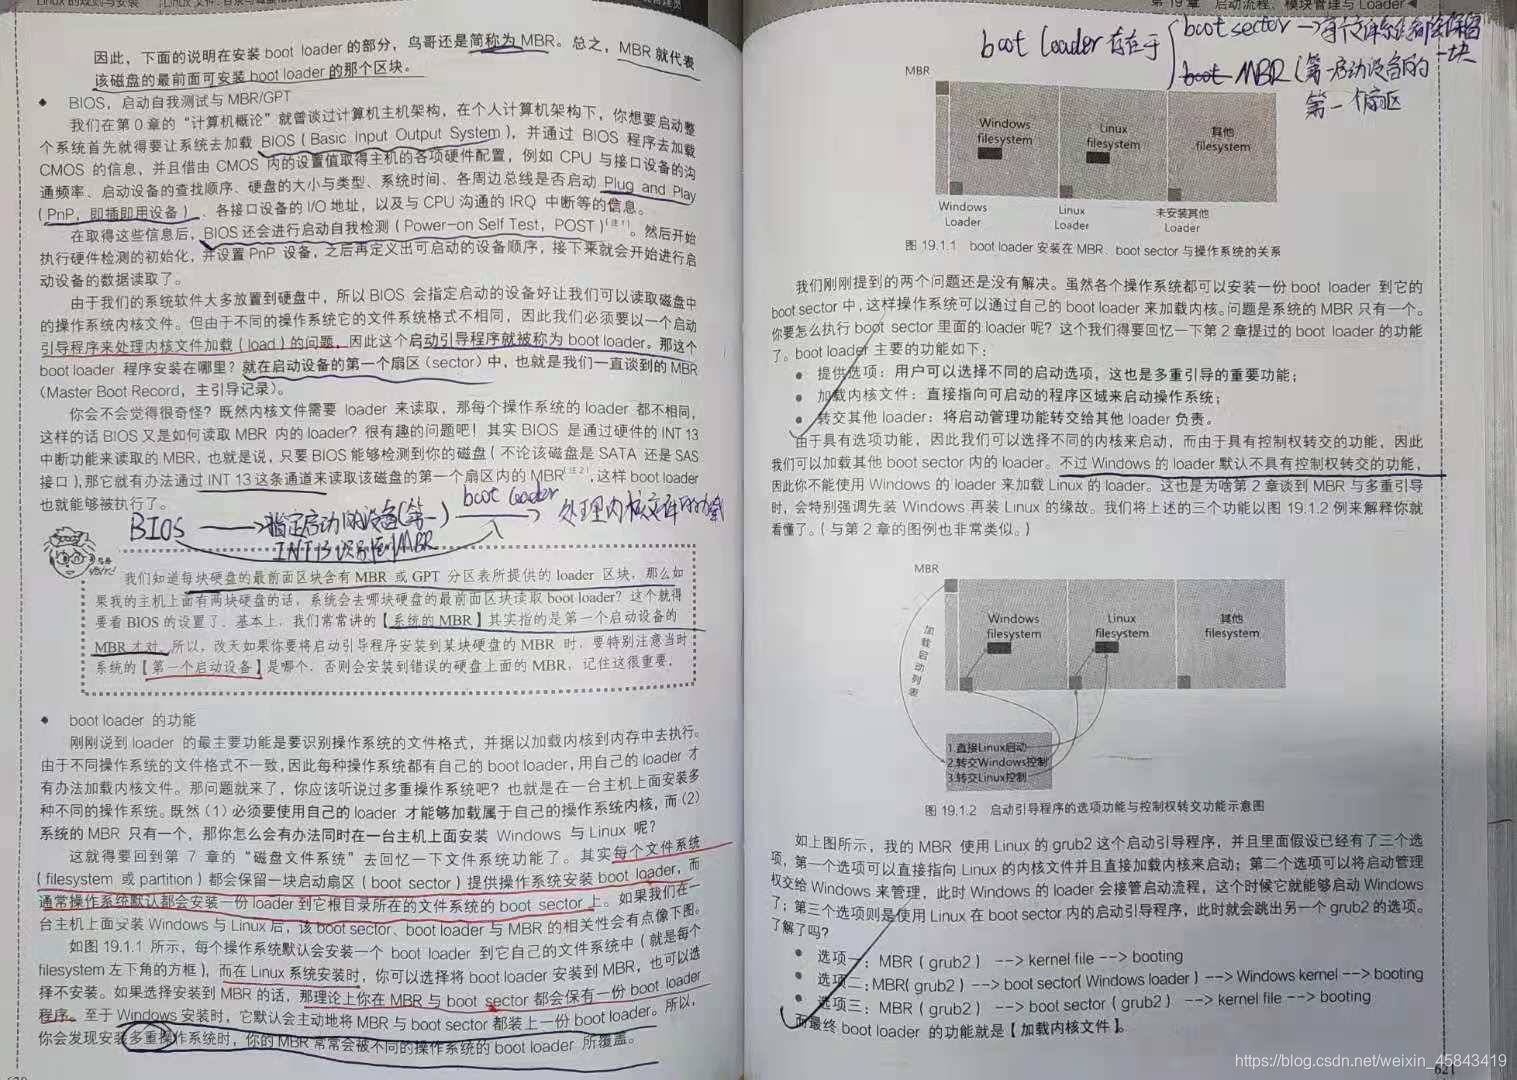 Linux 的规则与安装
Linux 文件、目录与磁盘格式
因此，下面的说明在安装 boot loader 的部分，鸟哥还是简称为 MBR。总之，MBR 就代表
该磁盘的最前面可安装 boot loader 的那个区块。
◆ BIOS，启动自我测试与 MBR/GPT
我们在第 0 章的“计算机概论”就曾谈过计算机主机架构，在个人计算机架构下，你想要启动整
个系统首先就得要让系统去加载 BIOS（Basic Input Output System），并通过 BIOS 程序去加载
CMOS 的信息，并且借由 CMOS 内的设置值取得主机的各项硬件配置，例如 CPU 与接口设备的沟
通频率、启动设备的查找顺序、硬盘的大小与类型、系统时间、各周边总线是否启动 Plug and Play
（PnP，即插即用设备）、各接口设备的 I/O 地址，以及与 CPU 沟通的 IRQ 中断等的信息。
在取得这些信息后，BIOS 还会进行启动自我检测（Power-on Self Test，POST）（注1）。然后开始
执行硬件检测的初始化，并设置 PnP 设备，之后再定义出可启动的设备顺序，接下来就会开始进行启
动设备的数据读取了。
由于我们的系统软件大多放置到硬盘中，所以 BIOS 会指定启动的设备好让我们可以读取磁盘中
的操作系统内核文件。但由于不同的操作系统它的文件系统格式不相同，因此我们必须要以一个启动
引导程序来处理内核文件加载（load）的问题，因此这个启动引导程序就被称为 boot loader。那这个
boot loader 程序安装在哪里？就在启动设备的第一个扇区（sector）中，也就是我们一直谈到的 MBR
（Master Boot Record，主引导记录）。
你会不会觉得很奇怪？既然内核文件需要 loader 来读取，那每个操作系统的 loader 都不相同，
这样的话 BIOS 又是如何读取 MBR 内的 loader？很有趣的问题吧！其实 BIOS 是通过硬件的 INT 13
中断功能来读取的 MBR，也就是说，只要 BIOS 能够检测到你的磁盘（不论该磁盘是 SATA 还是 SAS
接口），那它就有办法通过 INT 13 这条通道来读取该磁盘的第一个扇区内的 MBR（注2），这样 boot loader
也就能够被执行了。
BIOS → 指定启动的设备(第一) boot loader → 处理内核文件的加载
INT13 识别到MBR
我们知道每块硬盘的最前面区块含有 MBR 或 GPT 分区表所提供的 loader 区块，那么如
果我的主机上面有两块硬盘的话，系统会去哪块硬盘的最前面区块读取 boot loader？这个就得
要看 BIOS 的设置了。基本上，我们常常讲的【系统的 MBR】其实指的是第一个启动设备的
MBR 才对。所以，改天如果你要将启动引导程序安装到某块硬盘的 MBR 时，要特别注意当时
系统的【第一个启动设备】是哪个，否则会安装到错误的硬盘上面的 MBR，记住这很重要。
◆ boot loader 的功能
刚刚说到 loader 的最主要功能是要识别操作系统的文件格式，并据以加载内核到内存中去执行。
由于不同操作系统的文件格式不一致，因此每种操作系统都有自己的 boot loader，用自己的 loader 才
有办法加载内核文件。那问题就来了，你应该听说过多重操作系统吧？也就是在一台主机上面安装多
种不同的操作系统。既然（1）必须要使用自己的 loader 才能够加载属于自己的操作系统内核，而（2）
系统的 MBR 只有一个，那你怎么会有办法同时在一台主机上面安装 Windows 与 Linux 呢？
这就得要回到第 7 章的“磁盘文件系统”去回忆一下文件系统功能了。其实每个文件系统
（filesystem 或 partition）都会保留一块启动扇区（boot sector）提供操作系统安装 boot loader，而
通常操作系统默认都会安装一份 loader 到它根目录所在的文件系统的 boot sector 上。如果我们在一
台主机上面安装 Windows 与 Linux 后，该 boot sector、boot loader 与 MBR 的相关性会有点像下图。
如图 19.1.1 所示，每个操作系统默认会安装一个 boot loader 到它自己的文件系统中（就是每个
filesystem 左下角的方框），而在 Linux 系统安装时，你可以选择将 boot loader 安装到 MBR，也可以选
择不安装。如果选择安装到 MBR 的话，那理论上你在 MBR 与 boot sector 都会保有一份 boot loader
程序。至于 Windows 安装时，它默认会主动地将 MBR 与 boot sector 都装上一份 boot loader。所以，
你会发现安装多重操作系统时，你的 MBR 常常会被不同的操作系统的 boot loader 所覆盖。
第 19 章 启动流程、模块管理与 Loader
boot loader 存在于
boot sector → 每个文件系统都会保留一块
boot MBR (第一启动设备的
第一个扇区
MBR
Windows
filesystem
Linux
filesystem
其他
filesystem
Windows
Loader
Linux
Loader
未安装其他
Loader
图 19.1.1 boot loader 安装在 MBR、boot sector 与操作系统的关系
我们刚刚提到的两个问题还是没有解决。虽然各个操作系统都可以安装一份 boot loader 到它的
boot sector 中，这样操作系统可以通过自己的 boot loader 来加载内核。问题是系统的 MBR 只有一个。
你要怎么执行 boot sector 里面的 loader 呢？这个我们得要回忆一下第 2 章提过的 boot loader 的功能
了。boot loader 主要的功能如下：
● 提供选项：用户可以选择不同的启动选项，这也是多重引导的重要功能；
● 加载内核文件：直接指向可启动的程序区域来启动操作系统；
● 转交其他 loader：将启动管理功能转交给其他 loader 负责。
由于具有选项功能，因此我们可以选择不同的内核来启动，而由于具有控制权转交的功能，因此
我们可以加载其他 boot sector 内的 loader。不过 Windows 的 loader 默认不具有控制权转交的功能，
因此你不能使用 Windows 的 loader 来加载 Linux 的 loader。这也是为啥第 2 章谈到 MBR 与多重引导
时，会特别强调先装 Windows 再装 Linux 的缘故。我们将上述的三个功能以图 19.1.2 例来解释你就
看懂了。（与第 2 章的图例也非常类似。）
MBR
Windows
filesystem
Linux
filesystem
其他
filesystem
加载启动列表
1.直接Linux启动
2.转交Windows控制
3.转交Linux控制
图 19.1.2 启动引导程序的选项功能与控制权转交功能示意图
如上图所示，我的 MBR 使用 Linux 的 grub2 这个启动引导程序，并且里面假设已经有了三个选
项，第一个选项可以直接指向 Linux 的内核文件并且直接加载内核来启动；第二个选项可以将启动管理
权交给 Windows 来管理，此时 Windows 的 loader 会接管启动流程，这个时候它就能够启动 Windows
了；第三个选项则是使用 Linux 在 boot sector 内的启动引导程序，此时就会跳出另一个 grub2 的选项。
了解了吗？
● 选项一：MBR（grub2） --> kernel file --> booting
● 选项二：MBR（grub2） --> boot sector（Windows loader） --> Windows kernel --> booting
● 选项三：MBR（grub2） --> boot sector（grub2） --> kernel file --> booting
而最终 boot loader 的功能就是【加载内核文件】。
621
https://blog.csdn.net/weixin_45843419